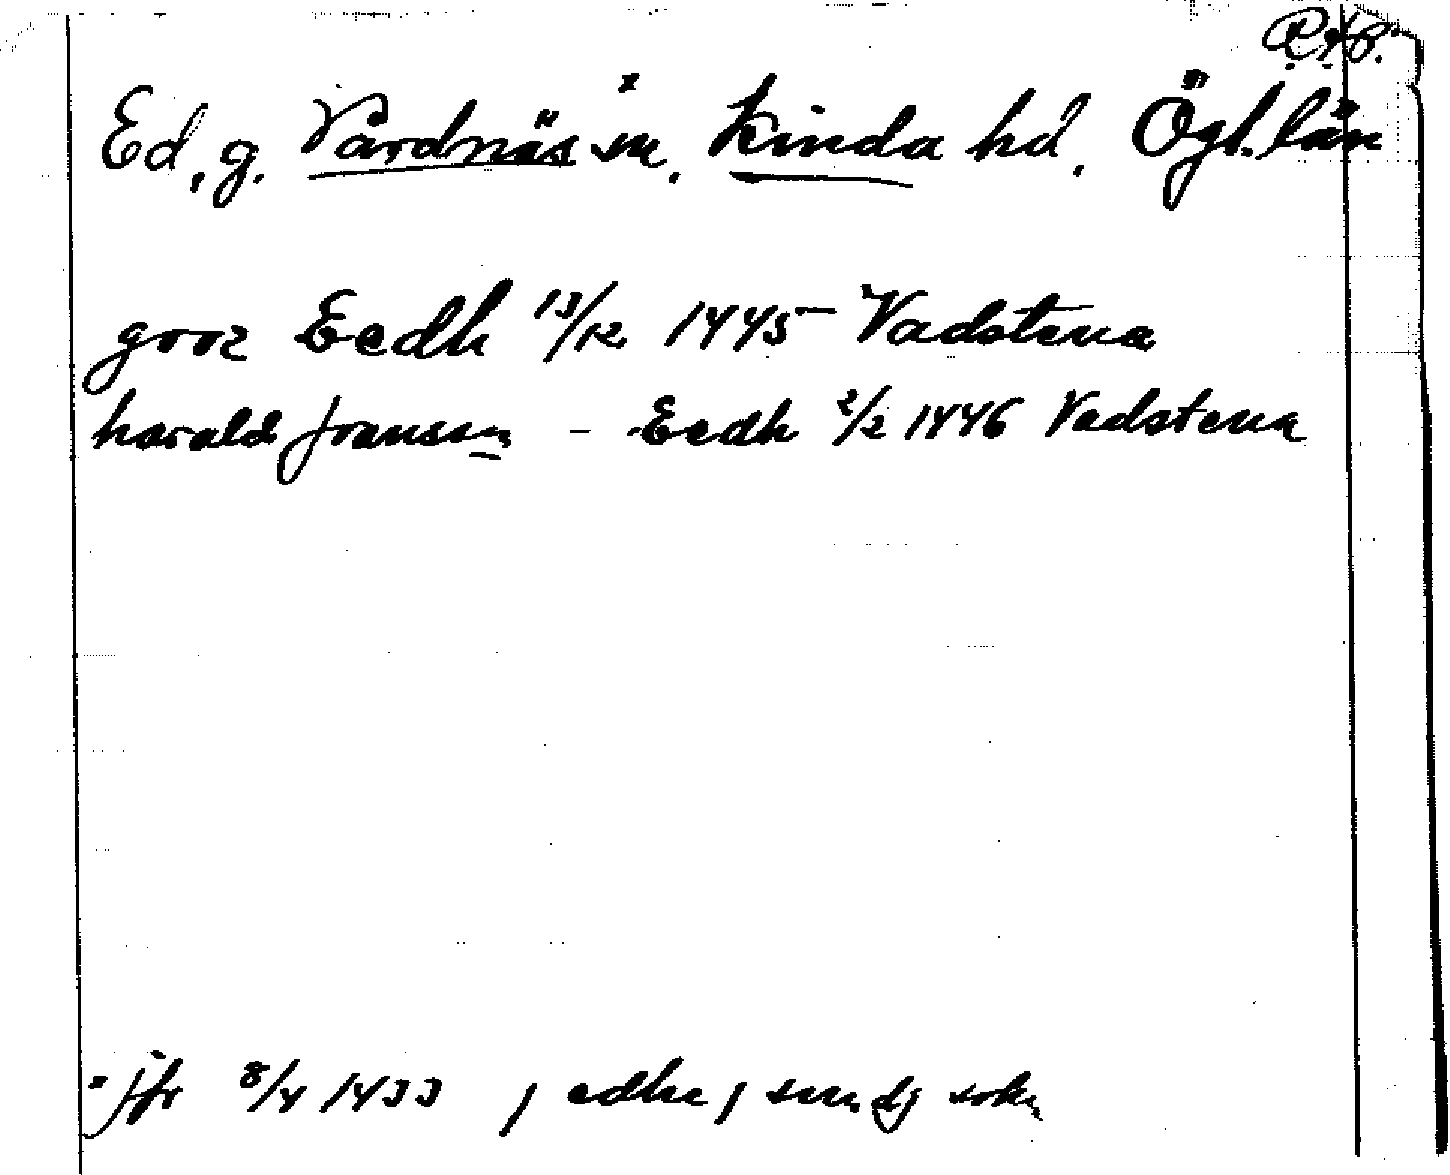 Ed, g. Vårdnäs sn. Kinda hd. Ögl. län
gooz Eedh 13/12 1445 Vadstena
harald jfranssn - Eedh 2/2 1446 Vadstena
x jfr 8/4 1433 j edhe j sundz sokn